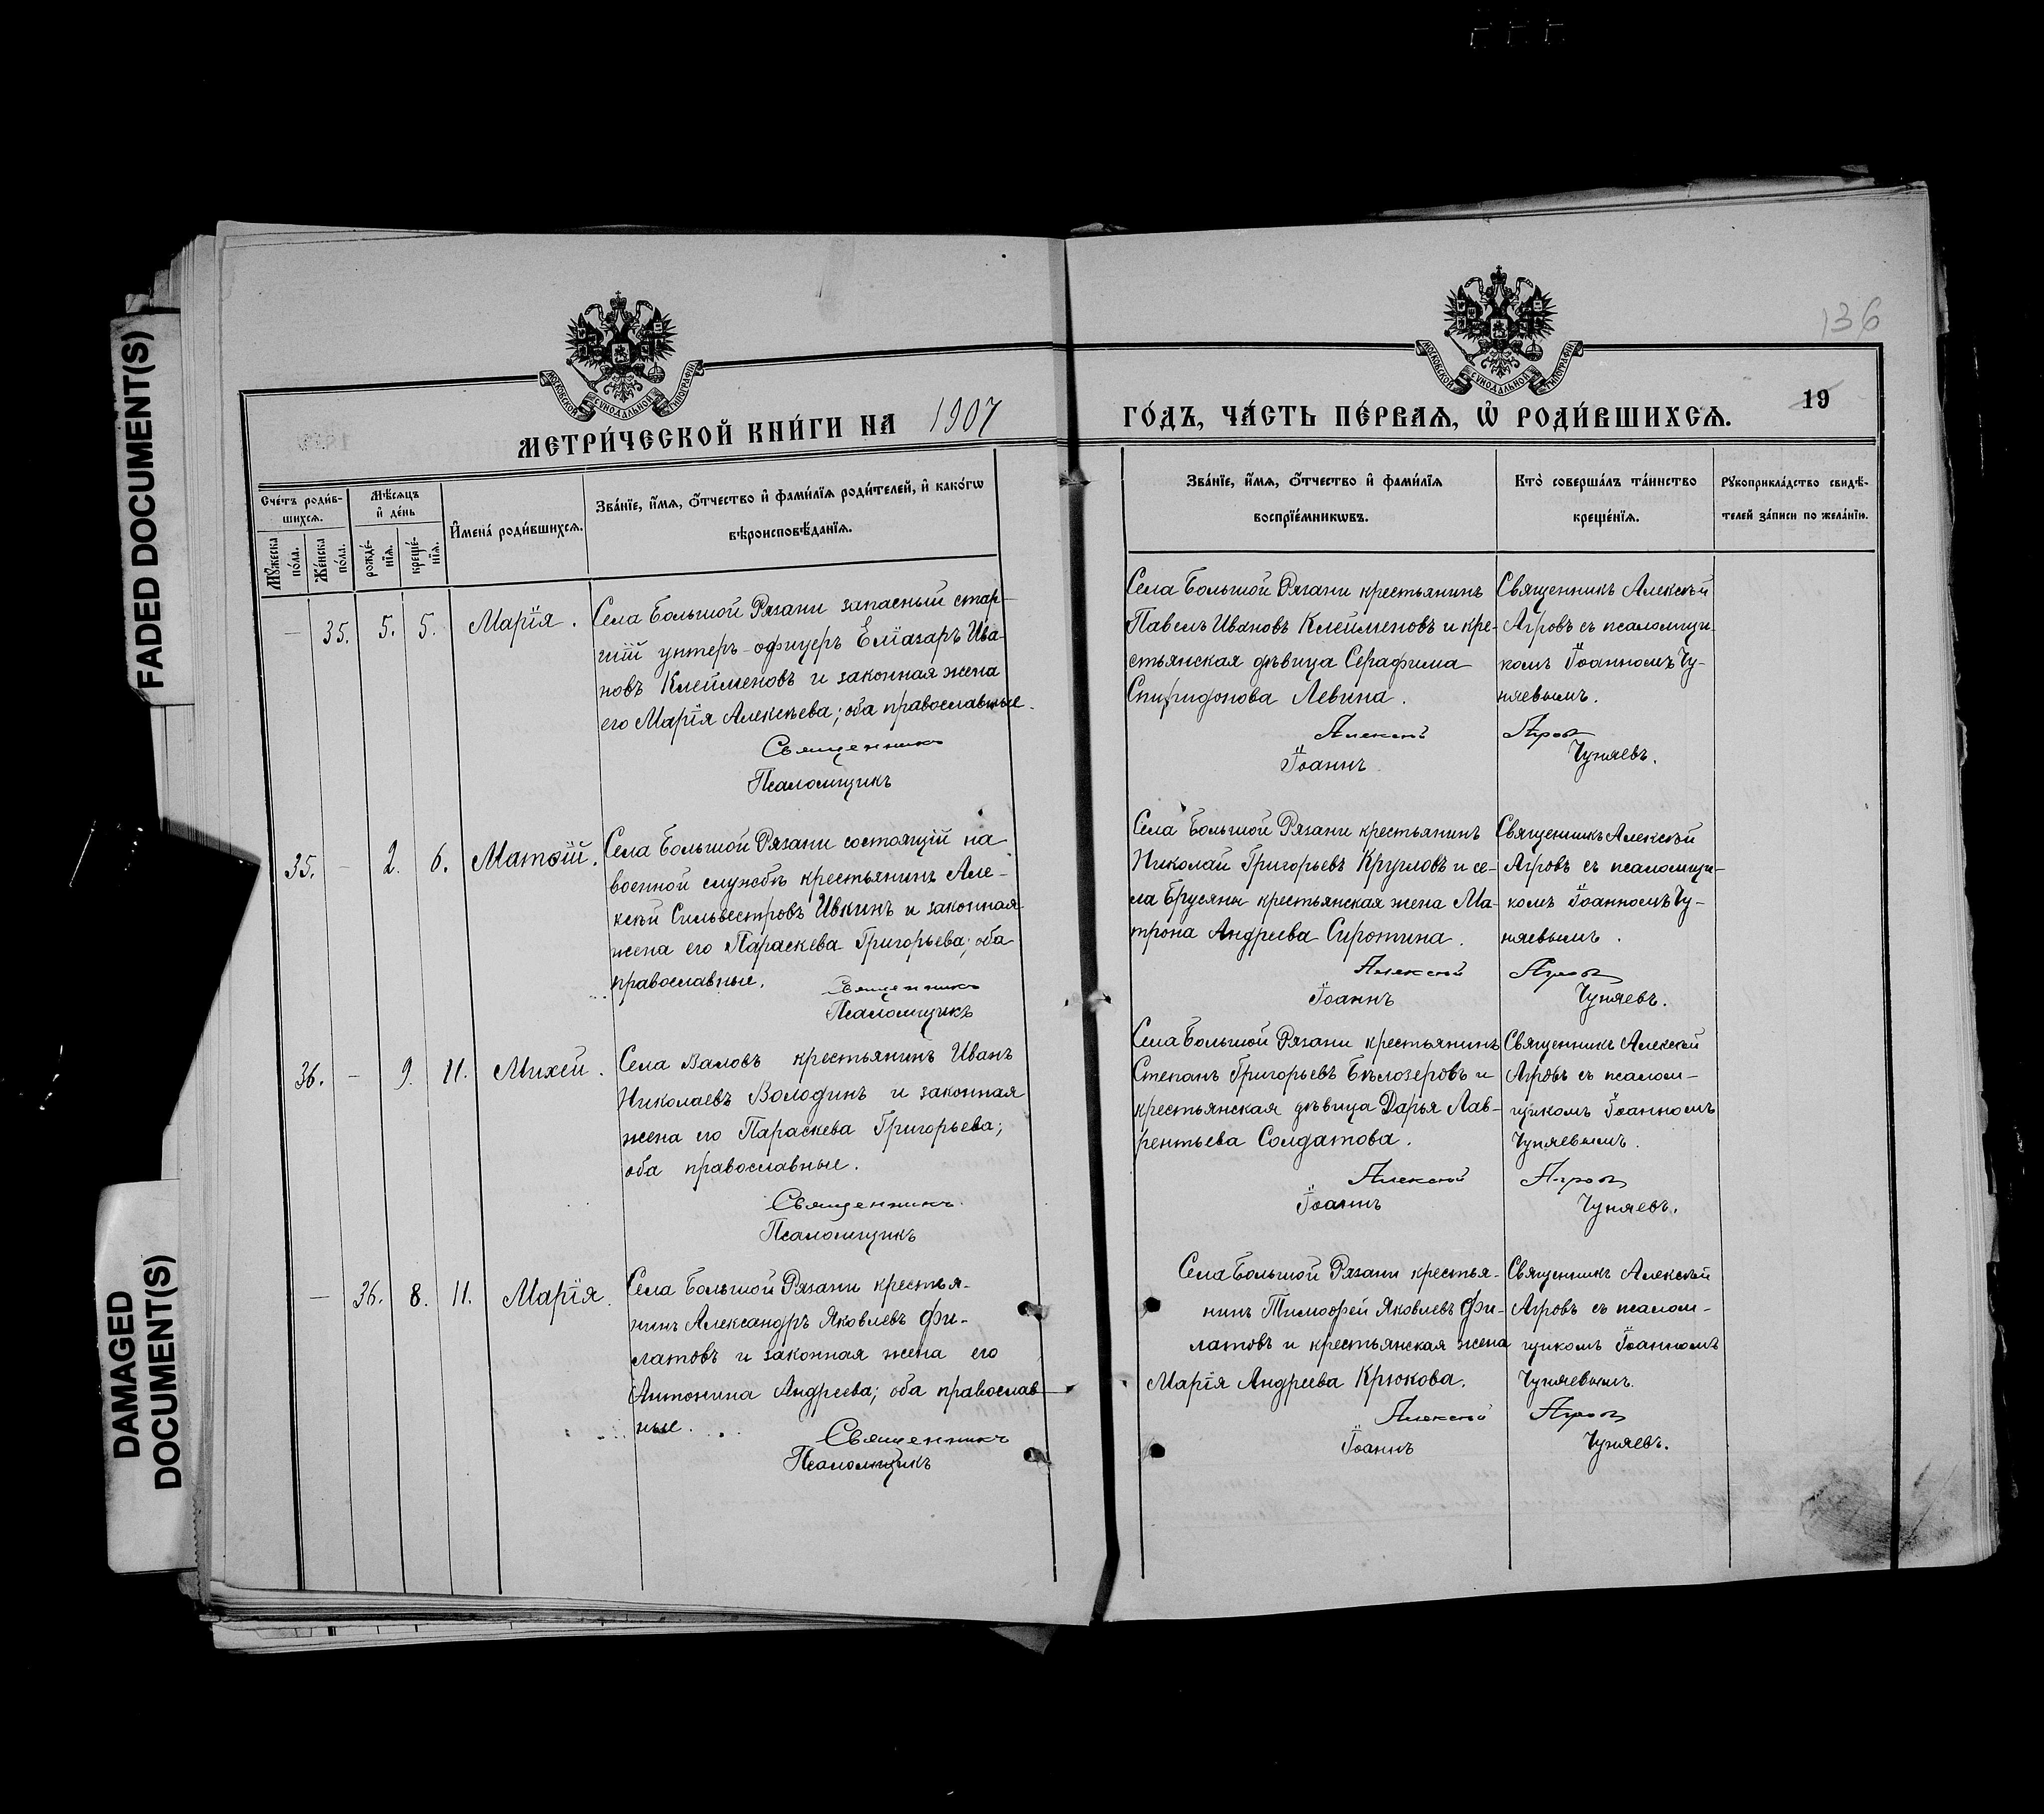 FADED DOCUMENT(S)
DAMAGED
DOCUMENT(S)
136
МОСКОВСКОЙ СѴНОДАЛЬНОЙ ТИПОГРАФІИ
МОСКОВСКОЙ СѴНОДАЛЬНОЙ ТИПОГРАФІИ
МЕТРИ́ЧЕСКОЙ КНИ́ГИ НА 1907
ГО́ДЪ, ЧА́СТЬ ПЕ́РВАѦ, Ѽ РОДИ́ВШИХСѦ.
19
Сче́тъ роди́в-
шихсѧ.
Мꙋ́жеска
по́ла.
Же́нска
по́ла.
Мѣ́сѧцъ
и҆ де́нь
рожде́-
нїѧ.
креще́-
нїѧ.
И҆мена̀ роди́вшихсѧ.
Зва́нїе, и҆́мѧ, ѻ҆́тчество и҆ фами́лїѧ роди́телей, и҆ како́гѡ
вѣроисповѣ́данїѧ.
Зва́нїе, и҆́мѧ, ѻ҆́тчество и҆ фами́лїѧ
воспрїе́мникѡвъ.
Кто̀ соверша́лъ та́инство
креще́нїѧ.
Рꙋкоприкла́дство свидѣ́-
телей за́писи по жела́нїю.
— 35. 5. 5. Марія.
Села Большой Рязани запасный стар-
шій унтеръ-офицеръ Еліазаръ Ива-
новъ Клейменовъ и законная жена
его Марія Алексѣева; оба православные.
Священникъ
Псаломщикъ
Села Большой Рязани крестьянинъ
Павелъ Ивановъ Клейменовъ и кре-
стьянская дѣвица Серафима
Спиридонова Левина.
Алексій
Іоаннъ
Священникъ Алексѣй
Агровъ съ псаломщи-
комъ Іоанномъ Чу-
няевымъ.
Агровъ
Чуняевъ.
35. — 2. 6. Матѳій.
Села Большой Рязани состоящій на
военной службѣ крестьянинъ Але-
ксѣй Сильвестровъ Ивкинъ и законная
жена его Параскева Григорьева; оба
православные.
Священникъ
Псаломщикъ
Села Большой Рязани крестьянинъ
Николай Григорьевъ Кругловъ и се-
ла Брусяны крестьянская жена Ма-
трона Андреева Сиротина.
Алексій
Іоаннъ
Священникъ Алексѣй
Агровъ съ псаломщи-
комъ Іоанномъ Чу-
няевымъ.
Агровъ
Чуняевъ.
36. — 9. 11. Михей.
Села Валовъ крестьянинъ Иванъ
Николаевъ Володинъ и законная
жена его Параскева Григорьева;
оба православные.
Священникъ.
Псаломщикъ
Села Большой Рязани крестьянинъ
Степанъ Григорьевъ Бѣлозеровъ и
крестьянская дѣвица Дарья Лав-
рентьева Солдатова.
Алексій
Іоаннъ
Священникъ Алексѣй
Агровъ съ псалом-
щикомъ Іоанномъ
Чуняевымъ.
Агровъ
Чуняевъ.
— 36. 8. 11. Марія.
Села Большой Рязани крестья-
нинъ Александръ Яковлевъ Фи-
латовъ и законная жена его
Антонина Андреева; оба православ-
ные.
Священникъ
Псаломщикъ
Села Большой Рязани крестья-
нинъ Тимоѳей Яковлевъ Фи-
латовъ и крестьянская жена
Марія Андреева Крюкова.
Алексій
Іоаннъ
Священникъ Алексѣй
Агровъ съ псалом-
щикомъ Іоанномъ
Чуняевымъ.
Агровъ
Чуняевъ.